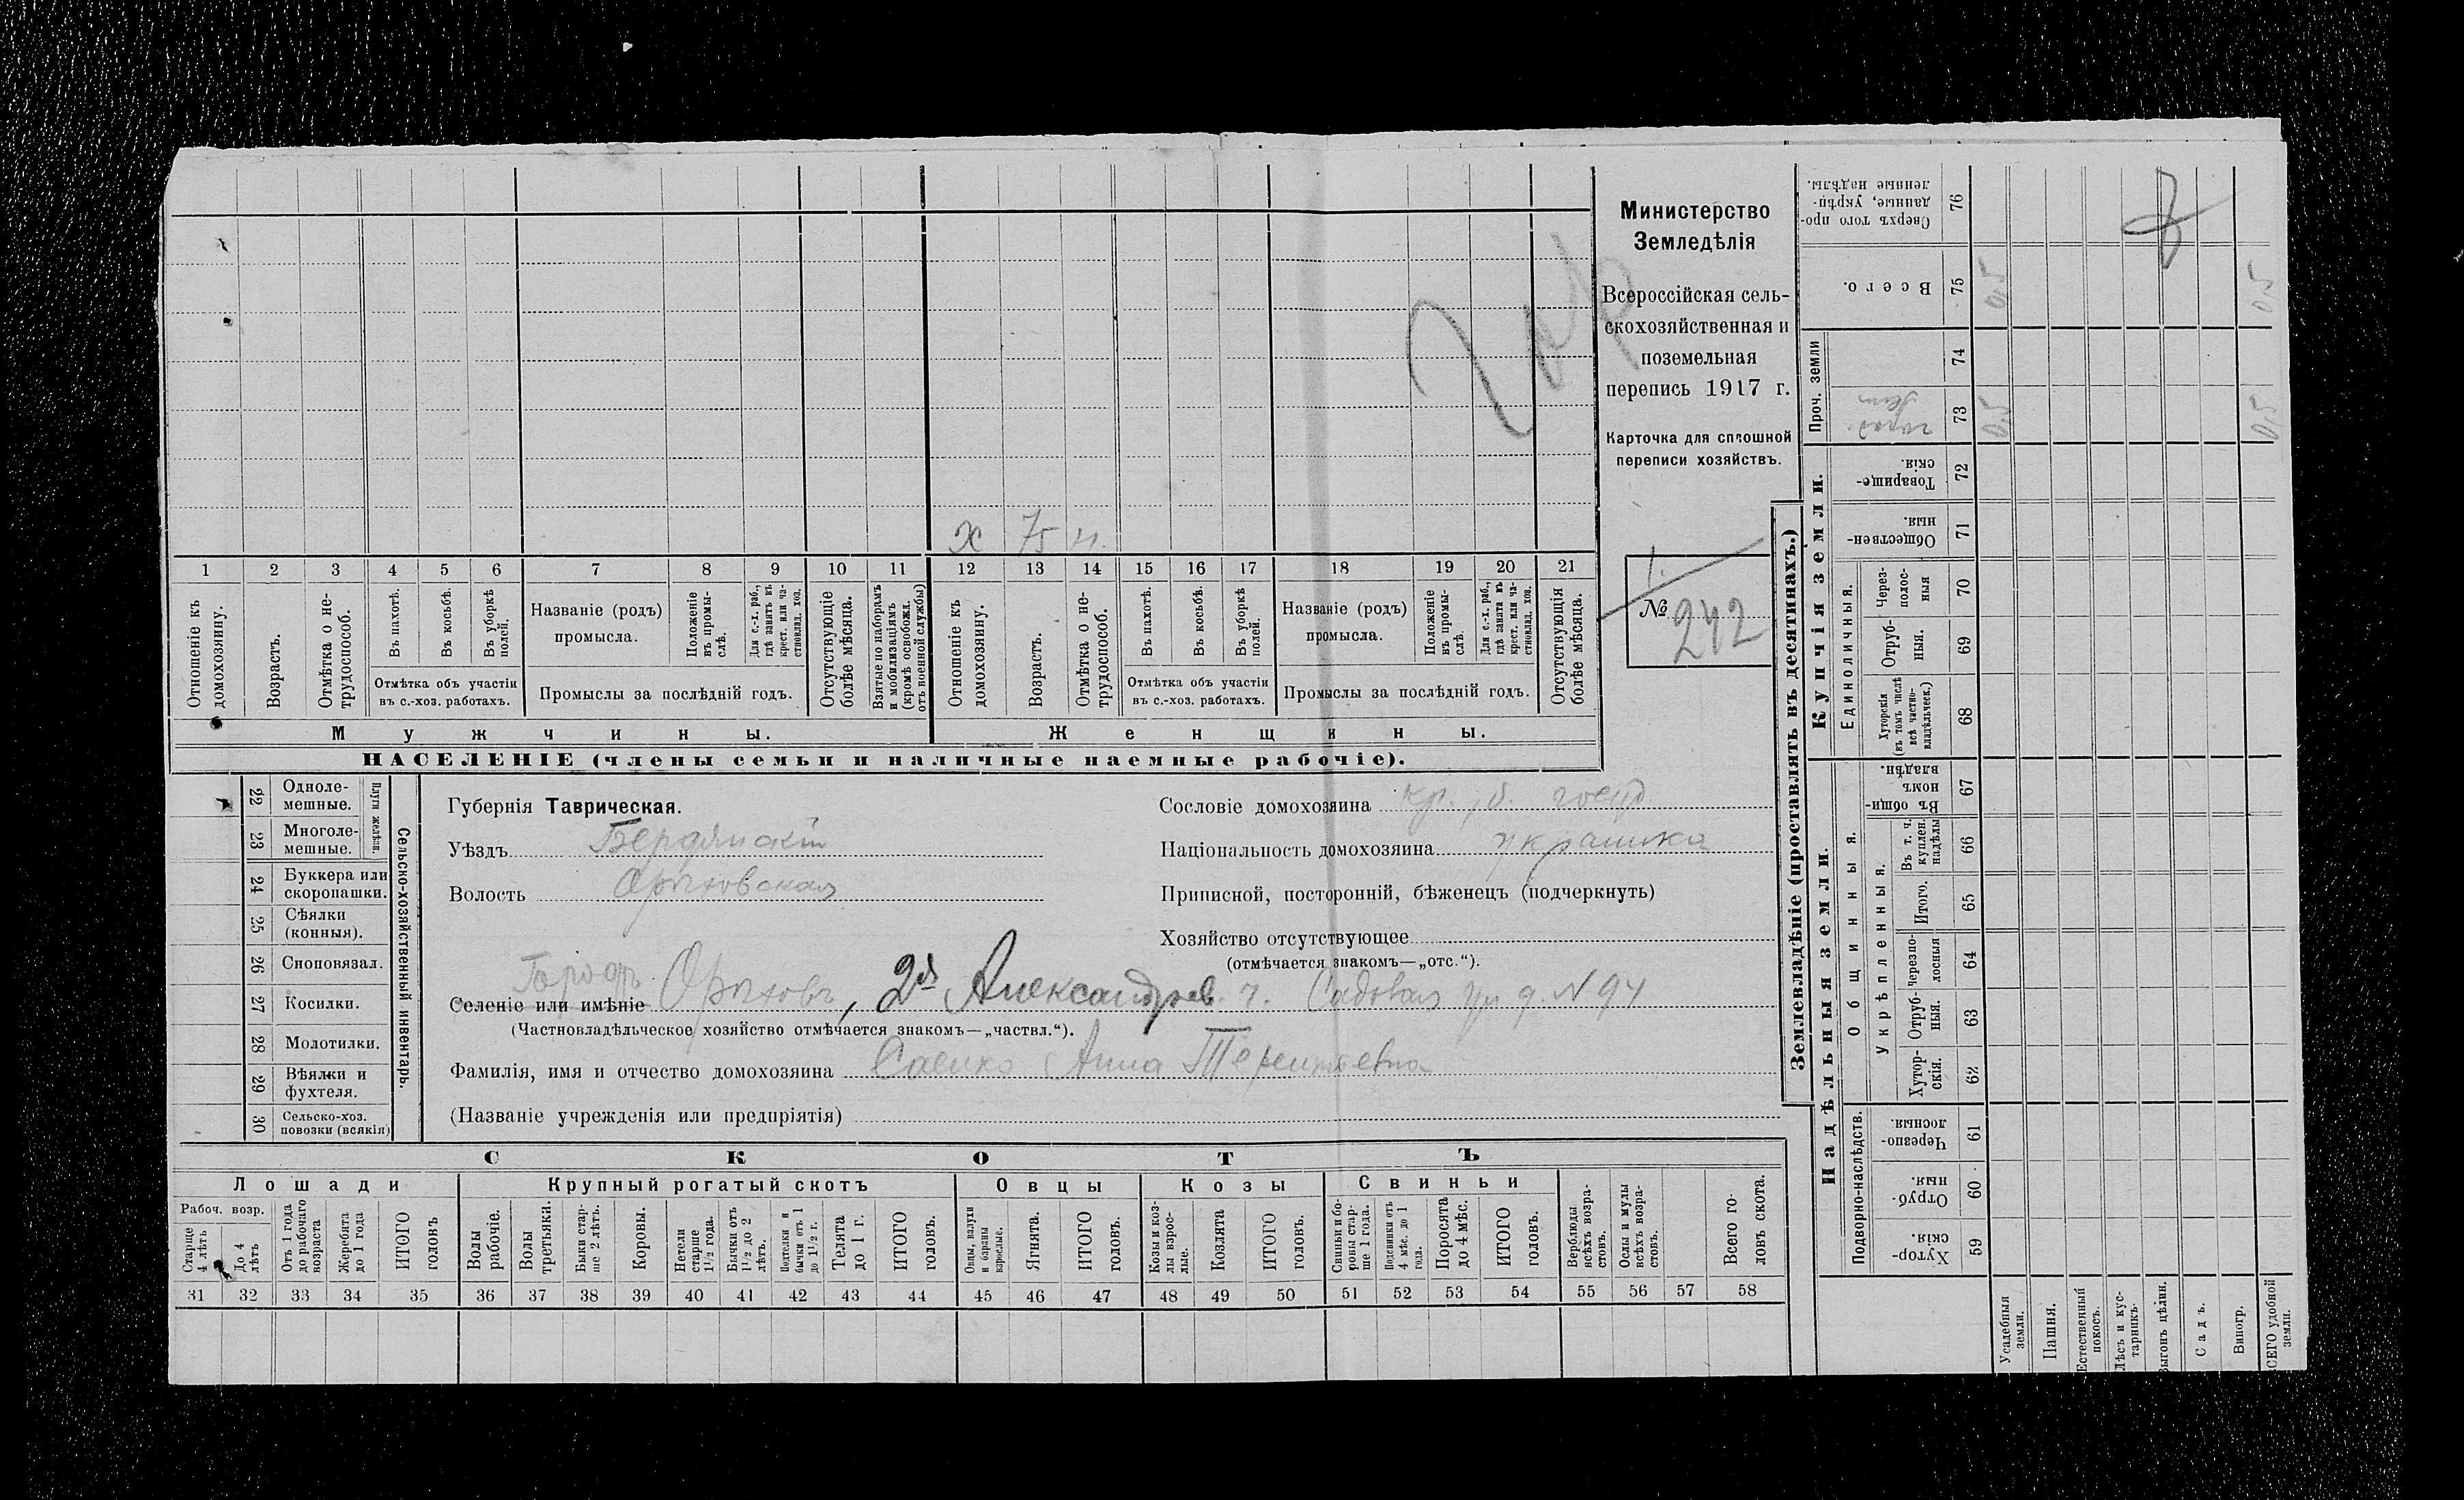 Министерство
Земледѣлія
Всероссійская сель-
скохозяйственная и
поземельная
перепись 1917 г.
Карточка для сплошной
переписи хозяйствъ.
1.
№ 242
х 75 н.
1 2 3 4 5 6 7 8 9 10 11 12 13 14 15 16 17 18 19 20 21
Отношеніе къ домохозяину.
Возрастъ.
Отмѣтка о не-трудоспособ.
Въ пахотѣ.
Въ косьбѣ.
Въ уборкѣ полей.
Отмѣтка объ участіи
въ с.-хоз. работахъ.
Названіе (родъ)
промысла.
Положеніе въ промы-слѣ.
Для с.-х. раб., гдѣ занятъ въ крест. или ча-стновлад. хоз.
Промыслы за послѣдній годъ.
Отсутствующіе болѣе мѣсяца.
Взятые по наборамъ и мобилизаціямъ (кромѣ освобожд. отъ военной службы)
Отношеніе къ домохозяину.
Возрастъ.
Отмѣтка о не-трудоспособ.
Въ пахотѣ.
Въ косьбѣ.
Въ уборкѣ полей.
Отмѣтка объ участіи
въ с.-хоз. работахъ.
Названіе (родъ)
промысла.
Положеніе въ промы-слѣ.
Для с.-х. раб., гдѣ занята въ крест. или ча-стновлад. хоз.
Промыслы за послѣдній годъ.
Отсутствующія болѣе мѣсяца.
Мужчины. Женщины.
НАСЕЛЕНІЕ (члены семьи и наличные наемные рабочіе).
22 Одноле-мешные.
23 Многоле-мешные.
Плуги желѣзн.
24 Буккера или скоропашки.
25 Сѣялки (конныя).
26 Сноповязал.
27 Косилки.
28 Молотилки.
29 Вѣялки и фухтеля.
30 Сельско-хоз. повозки (всякія)
Сельско-хозяйственный инвентарь.
Губернія Таврическая.
Уѣздъ Бердянскій
Волость Орѣховская
Городъ
Селеніе или имѣніе Орѣховъ, 2я Александров. ч. Садовая ул д. N 94
(Частновладѣльческое хозяйство отмѣчается знакомъ—„частвл.“).
Фамилія, имя и отчество домохозяина Саенко Анна Терентьевна
(Названіе учрежденія или предпріятія)
Сословіе домохозяина кр. б. госуд
Національность домохозяина украинка
Приписной, посторонній, бѣженецъ (подчеркнуть)
Хозяйство отсутствующее
(отмѣчается знакомъ—„отс.“).
СКОТЪ
Лошади Крупный рогатый скотъ Овцы Козы Свиньи
Рабоч. возр.
Старше 4 лѣтъ
До 4 лѣтъ
Отъ 1 года до рабочаго возраста
Жеребята до 1 года
ИТОГО головъ
Волы рабочіе.
Волы третьяки.
Быки стар-ше 2 лѣтъ.
Коровы.
Нетели старше 1½ года.
Бычки отъ 1½ до 2 лѣтъ.
Подтелки и бычки отъ 1 до 1½ г.
Телята до 1 г.
ИТОГО головъ.
Овцы, валухи и бараны взрослые.
Ягнята.
ИТОГО головъ.
Козы и коз-лы взрос-лые.
Козлята
ИТОГО головъ.
Свиньи и бо-ровы стар-ше 1 года.
Подсвинки отъ 4 мѣс. до 1 года.
Поросята до 4 мѣс.
ИТОГО головъ.
Верблюды всѣхъ возра-стовъ.
Ослы и мулы всѣхъ возра-стовъ.
Всего го-ловъ скота.
31 32 33 34 35 36 37 38 39 40 41 42 43 44 45 46 47 48 49 50 51 52 53 54 55 56 57 58
Землевладѣніе (проставлять въ десятинахъ.)
Надѣльныя земли.
Купчія земли.
Проч. земли
Подворно-наслѣдств.
Общинныя.
Укрѣпленныя.
Единоличныя.
Хутор-скія. 59
Отруб-ныя. 60
Черезпо-лосныя 61
Хутор-скія. 62
Отруб-ныя. 63
Черезпо-лосныя 64
Итого. 65
Въ т. ч. куплен. надѣлы 66
Въ общин-номъ владѣн. 67
Хуторскія (въ томъ числѣ всѣ частно-владѣльческ.) 68
Отруб-ныя. 69
Через-полос-ныя 70
Обществен-ныя. 71
Товарище-скія. 72
город. 73
74
Всего. 75
Сверхъ того про-данные, укрѣп-ленные надѣлы. 76
0,5 0,5
0,5 0,5
Усадебныя земли.
Пашня.
Естественный покосъ.
Лѣсъ и кус-тарникъ.
Выгонъ цѣлин.
Садъ.
Виногр.
ВСЕГО удобной земли.